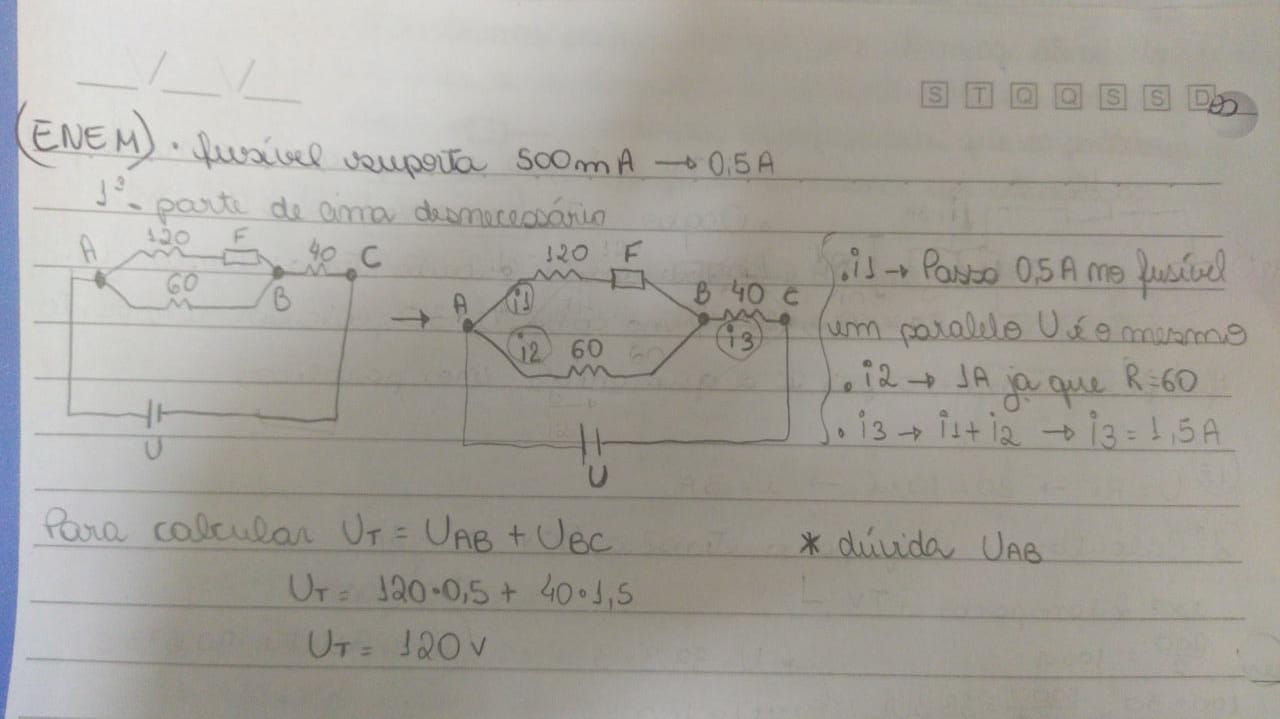 S T Q Q S S D
(ENEM). fusível suporta 500mA → 0,5A
1º- parte de cima desnecessário
A 120 F 40 C
60 B
U
→
120 F
A i1 B 40 C
i2 60 i3
U
. i1 → Passo 0,5A no fusível
um paralelo U é o mesmo
. i2 → 1A ja que R=60
. i3 → i1+i2 → i3 = 1,5A
Para calcular UT = UAB + UBC
* dúvida UAB
UT = 120•0,5 + 40•1,5
UT = 120 v